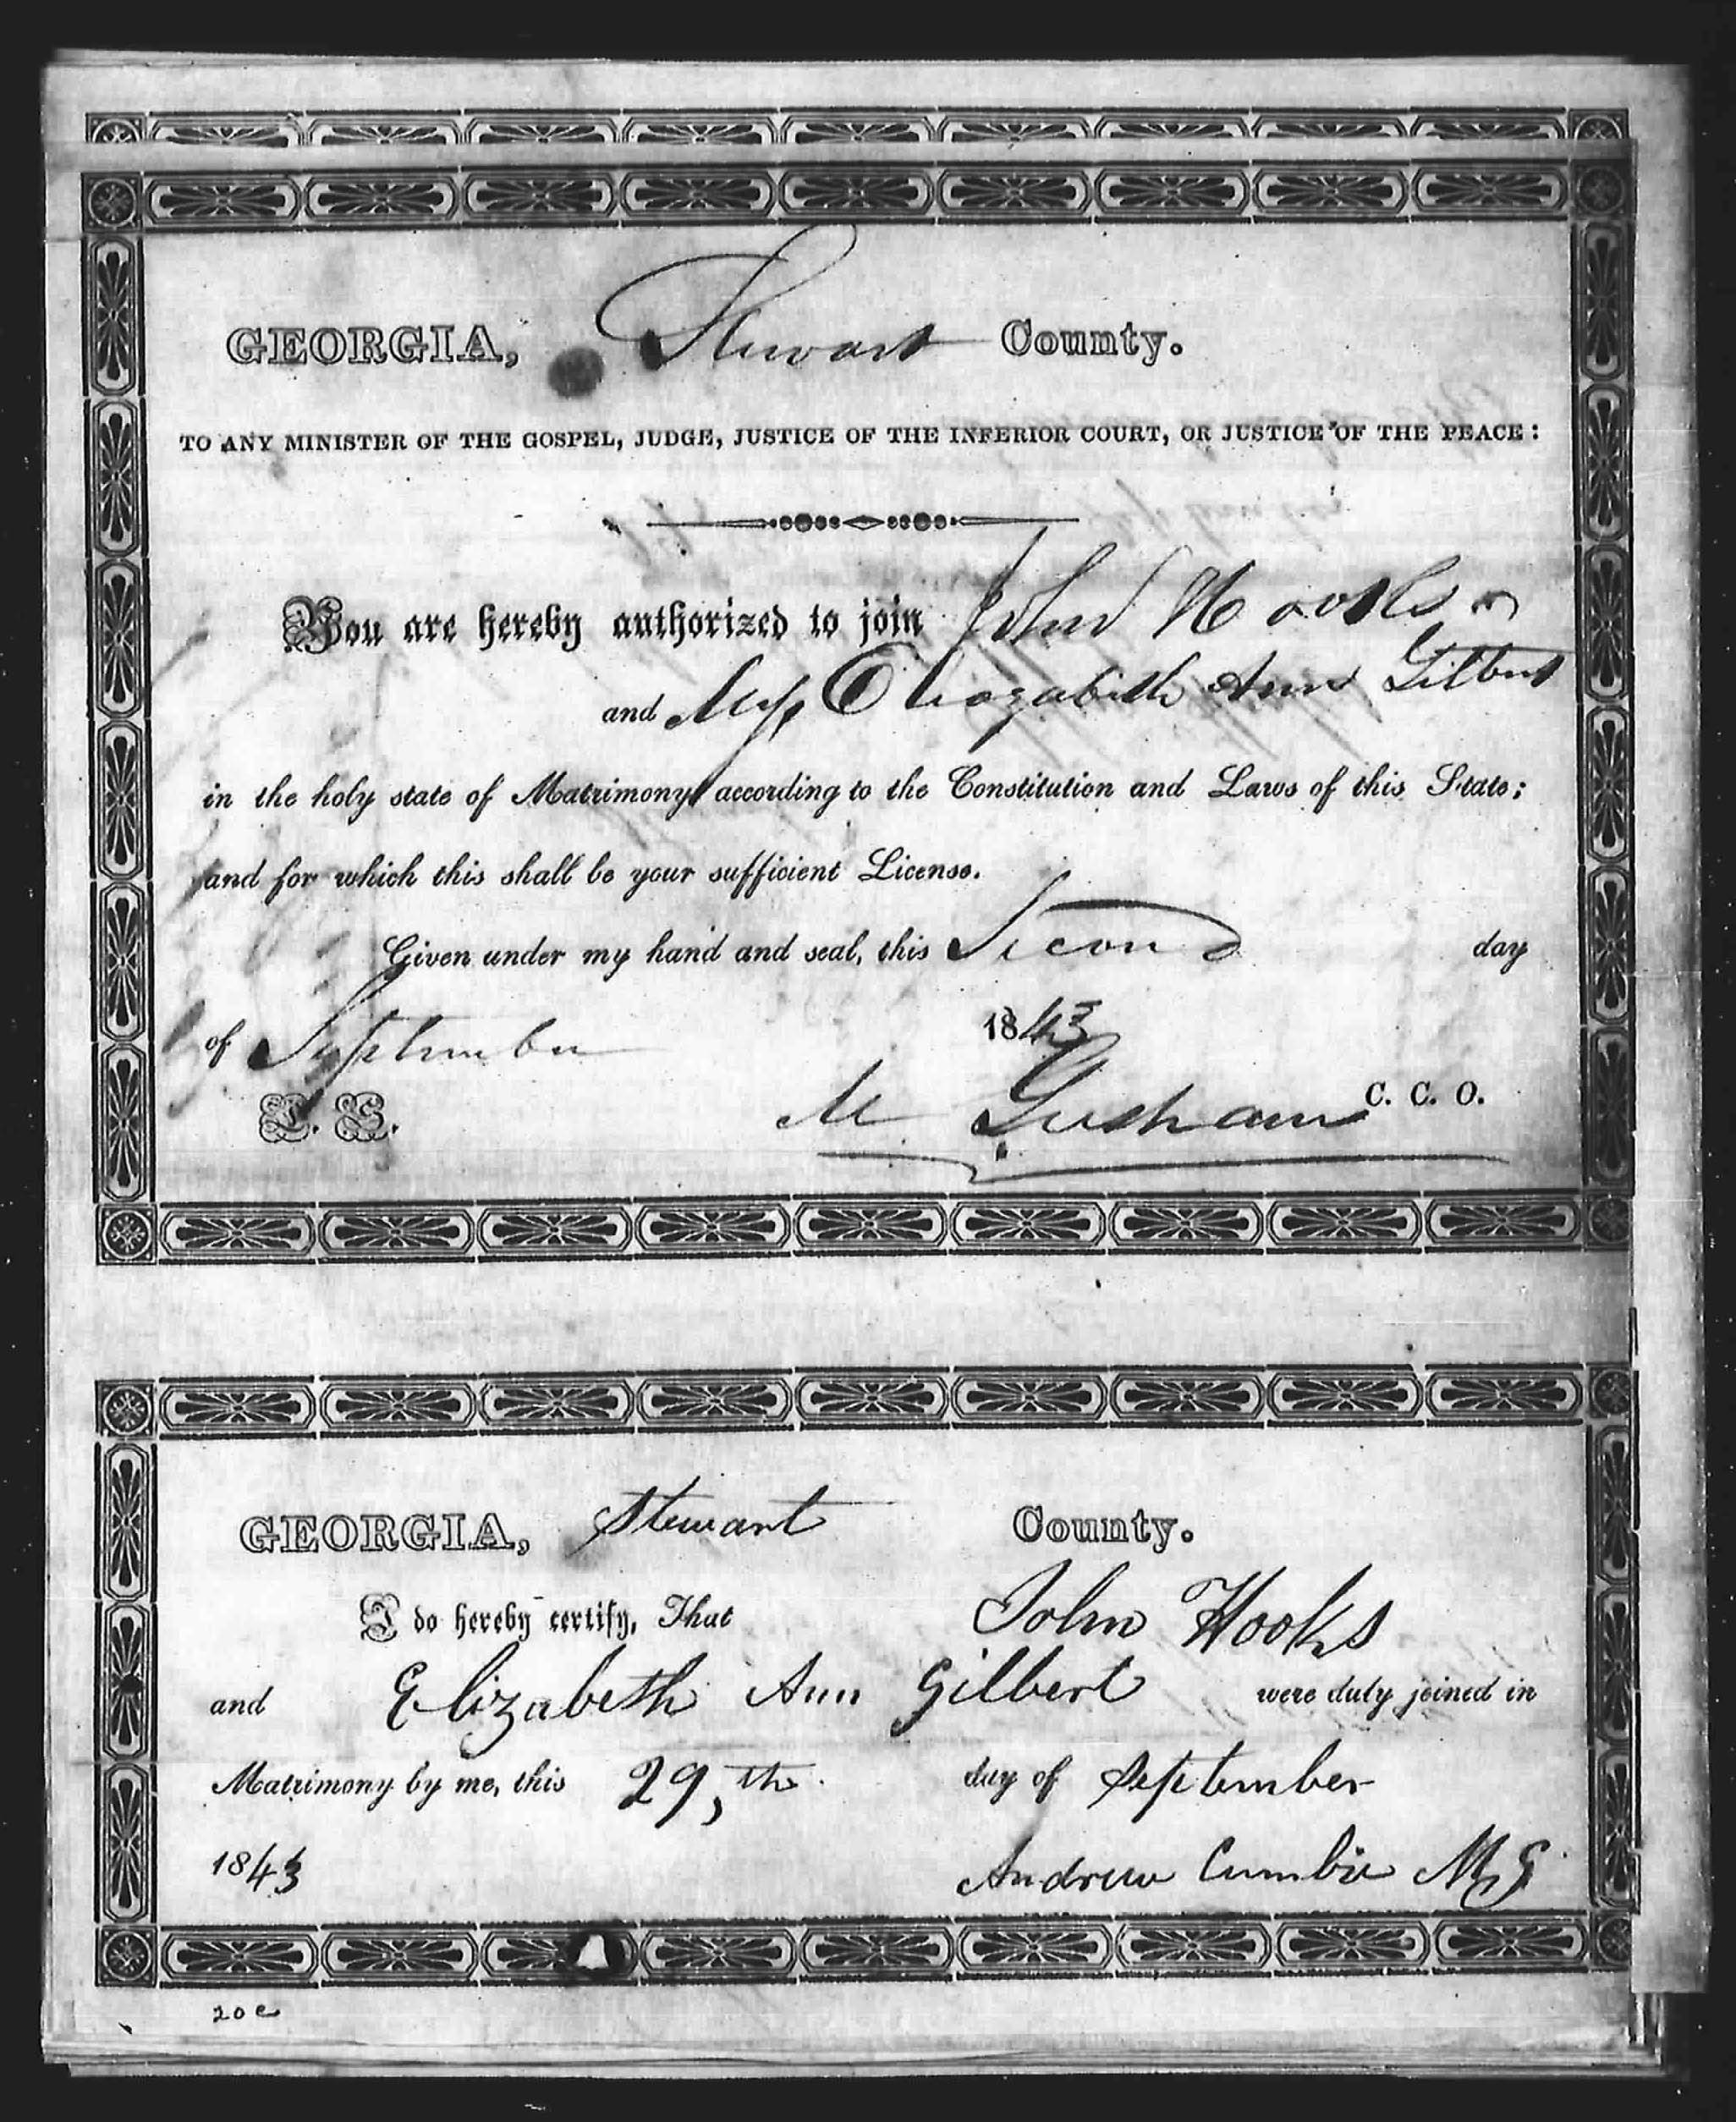 GEORGIA, Stewart County.
TO ANY MINISTER OF THE GOSPEL, JUDGE, JUSTICE OF THE INFERIOR COURT, OR JUSTICE OF THE PEACE:
You are hereby authorized to join John Hooks
and Miss Elizabeth Ann Gilbert
in the holy state of Matrimony according to the Constitution and Laws of this State;
and for which this shall be your sufficient License.
Given under my hand and seal, this Second day
of September 1843
L. S. M. Gresham C. C. O.
GEORGIA, Stewart County.
I do hereby certify, That John Hooks
and Elizabeth Ann Gilbert were duly joined in
Matrimony by me, this 29,th day of September
1843 Andrew Cumbie M G
20 e